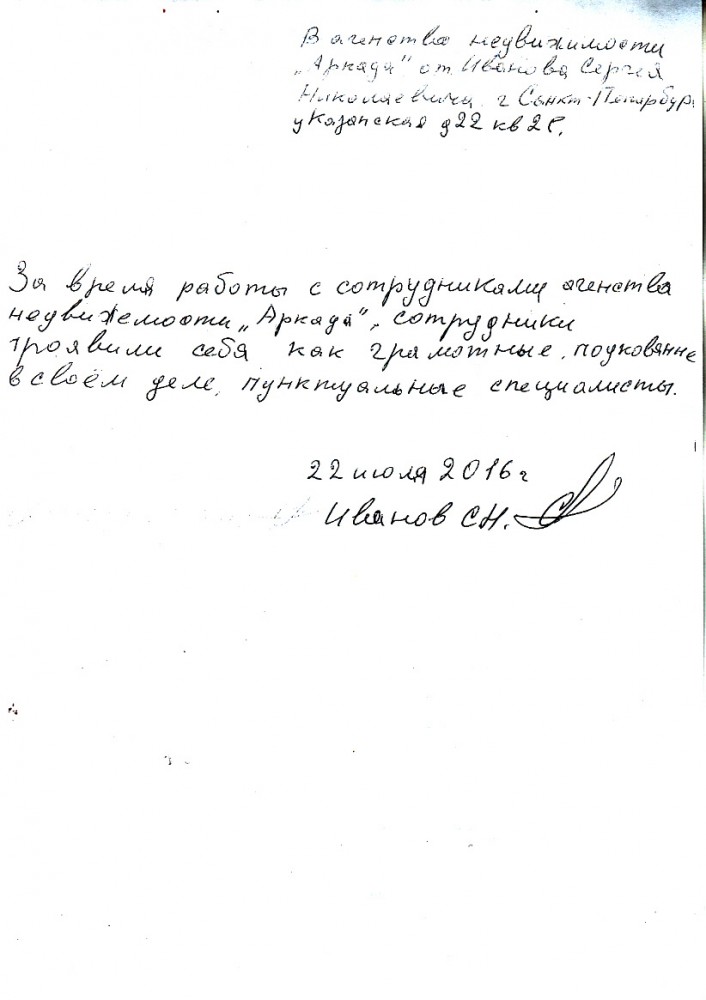 В агенство недвижимости
„Аркада" от Иванова Сергея
Николаевича г Санкт-Петербург
у Казанская д 22 кв
За время работы с сотрудниками агенства
недвижемости „Аркада", сотрудники
проявили себя как грамотные, подкованне
в своём деле, пунктуальные специалисты.
22 июля 2016 г
Иванов С Н.